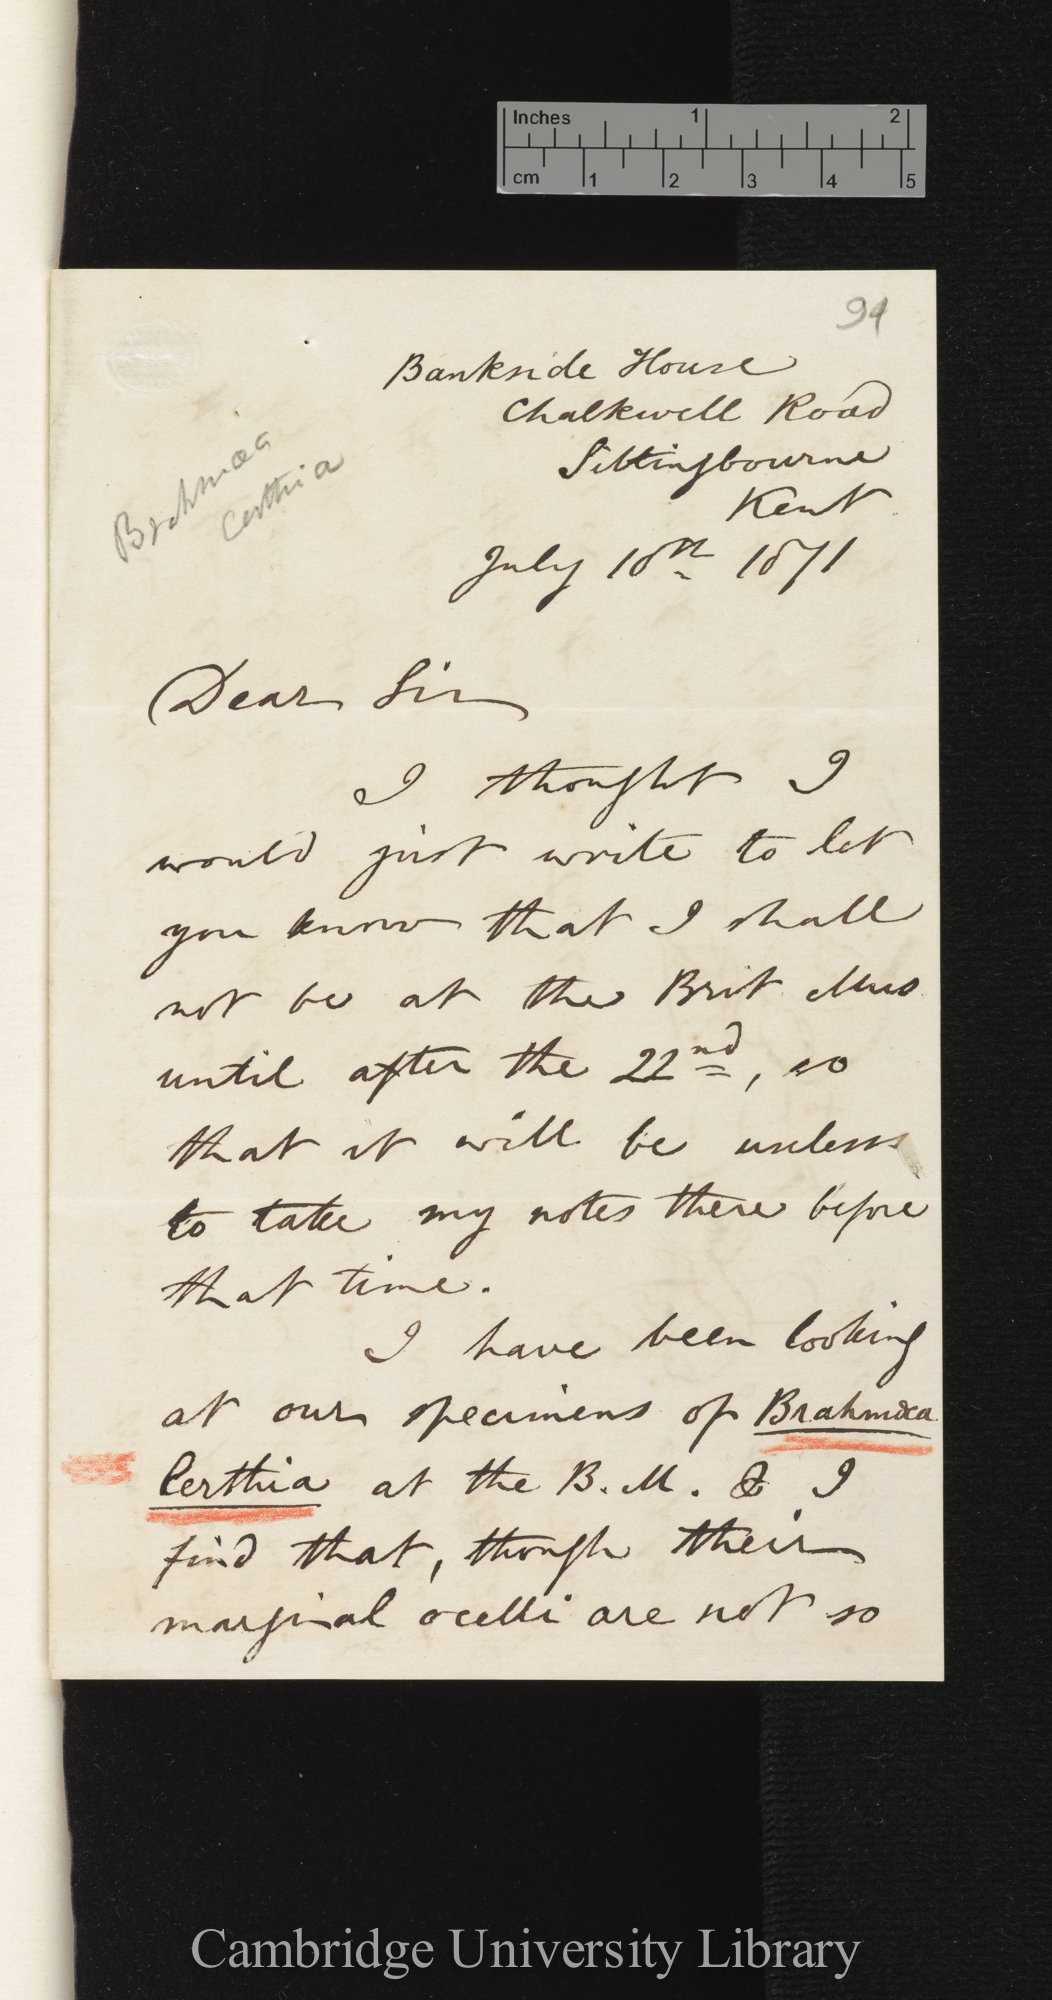 Inches 1 2
cm 1 2 3 4 5
94
Bankside House
Chalkwell Road
Sittingbourne
Kent
July 18th 1871
Brahmæa
Certhia
Dear Sir
I thought I
would just write to let
you know that I shall
not be at the Brit Mus
until after the 22nd, so
that it will be useless
to take my notes there before
that time.
I have been looking
at our specimens of Brahmæa
Certhia at the B.M. & I
find that, though their
marginal ocelli are not so
Cambridge University Library